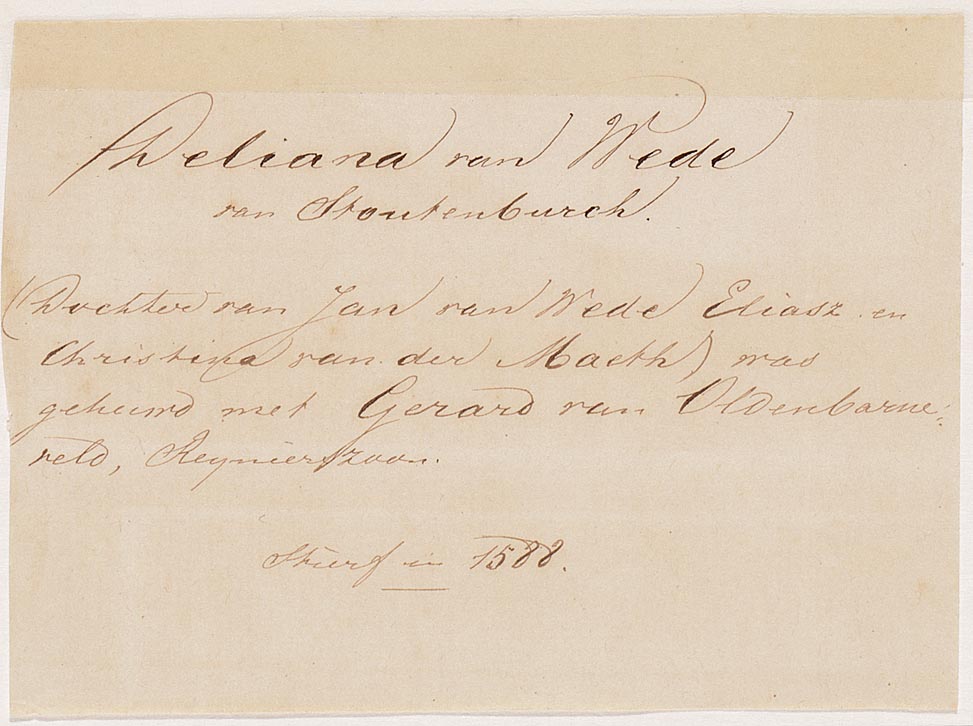 Deliana van Wede
van Stoutenburch.
(Dochter van Jan van Wede Eliasz. en
Christina van der Maeth) was
gehuwd met Gerard van Oldenbarne=
veld, Reynierszoon.
Stierf in 1588.